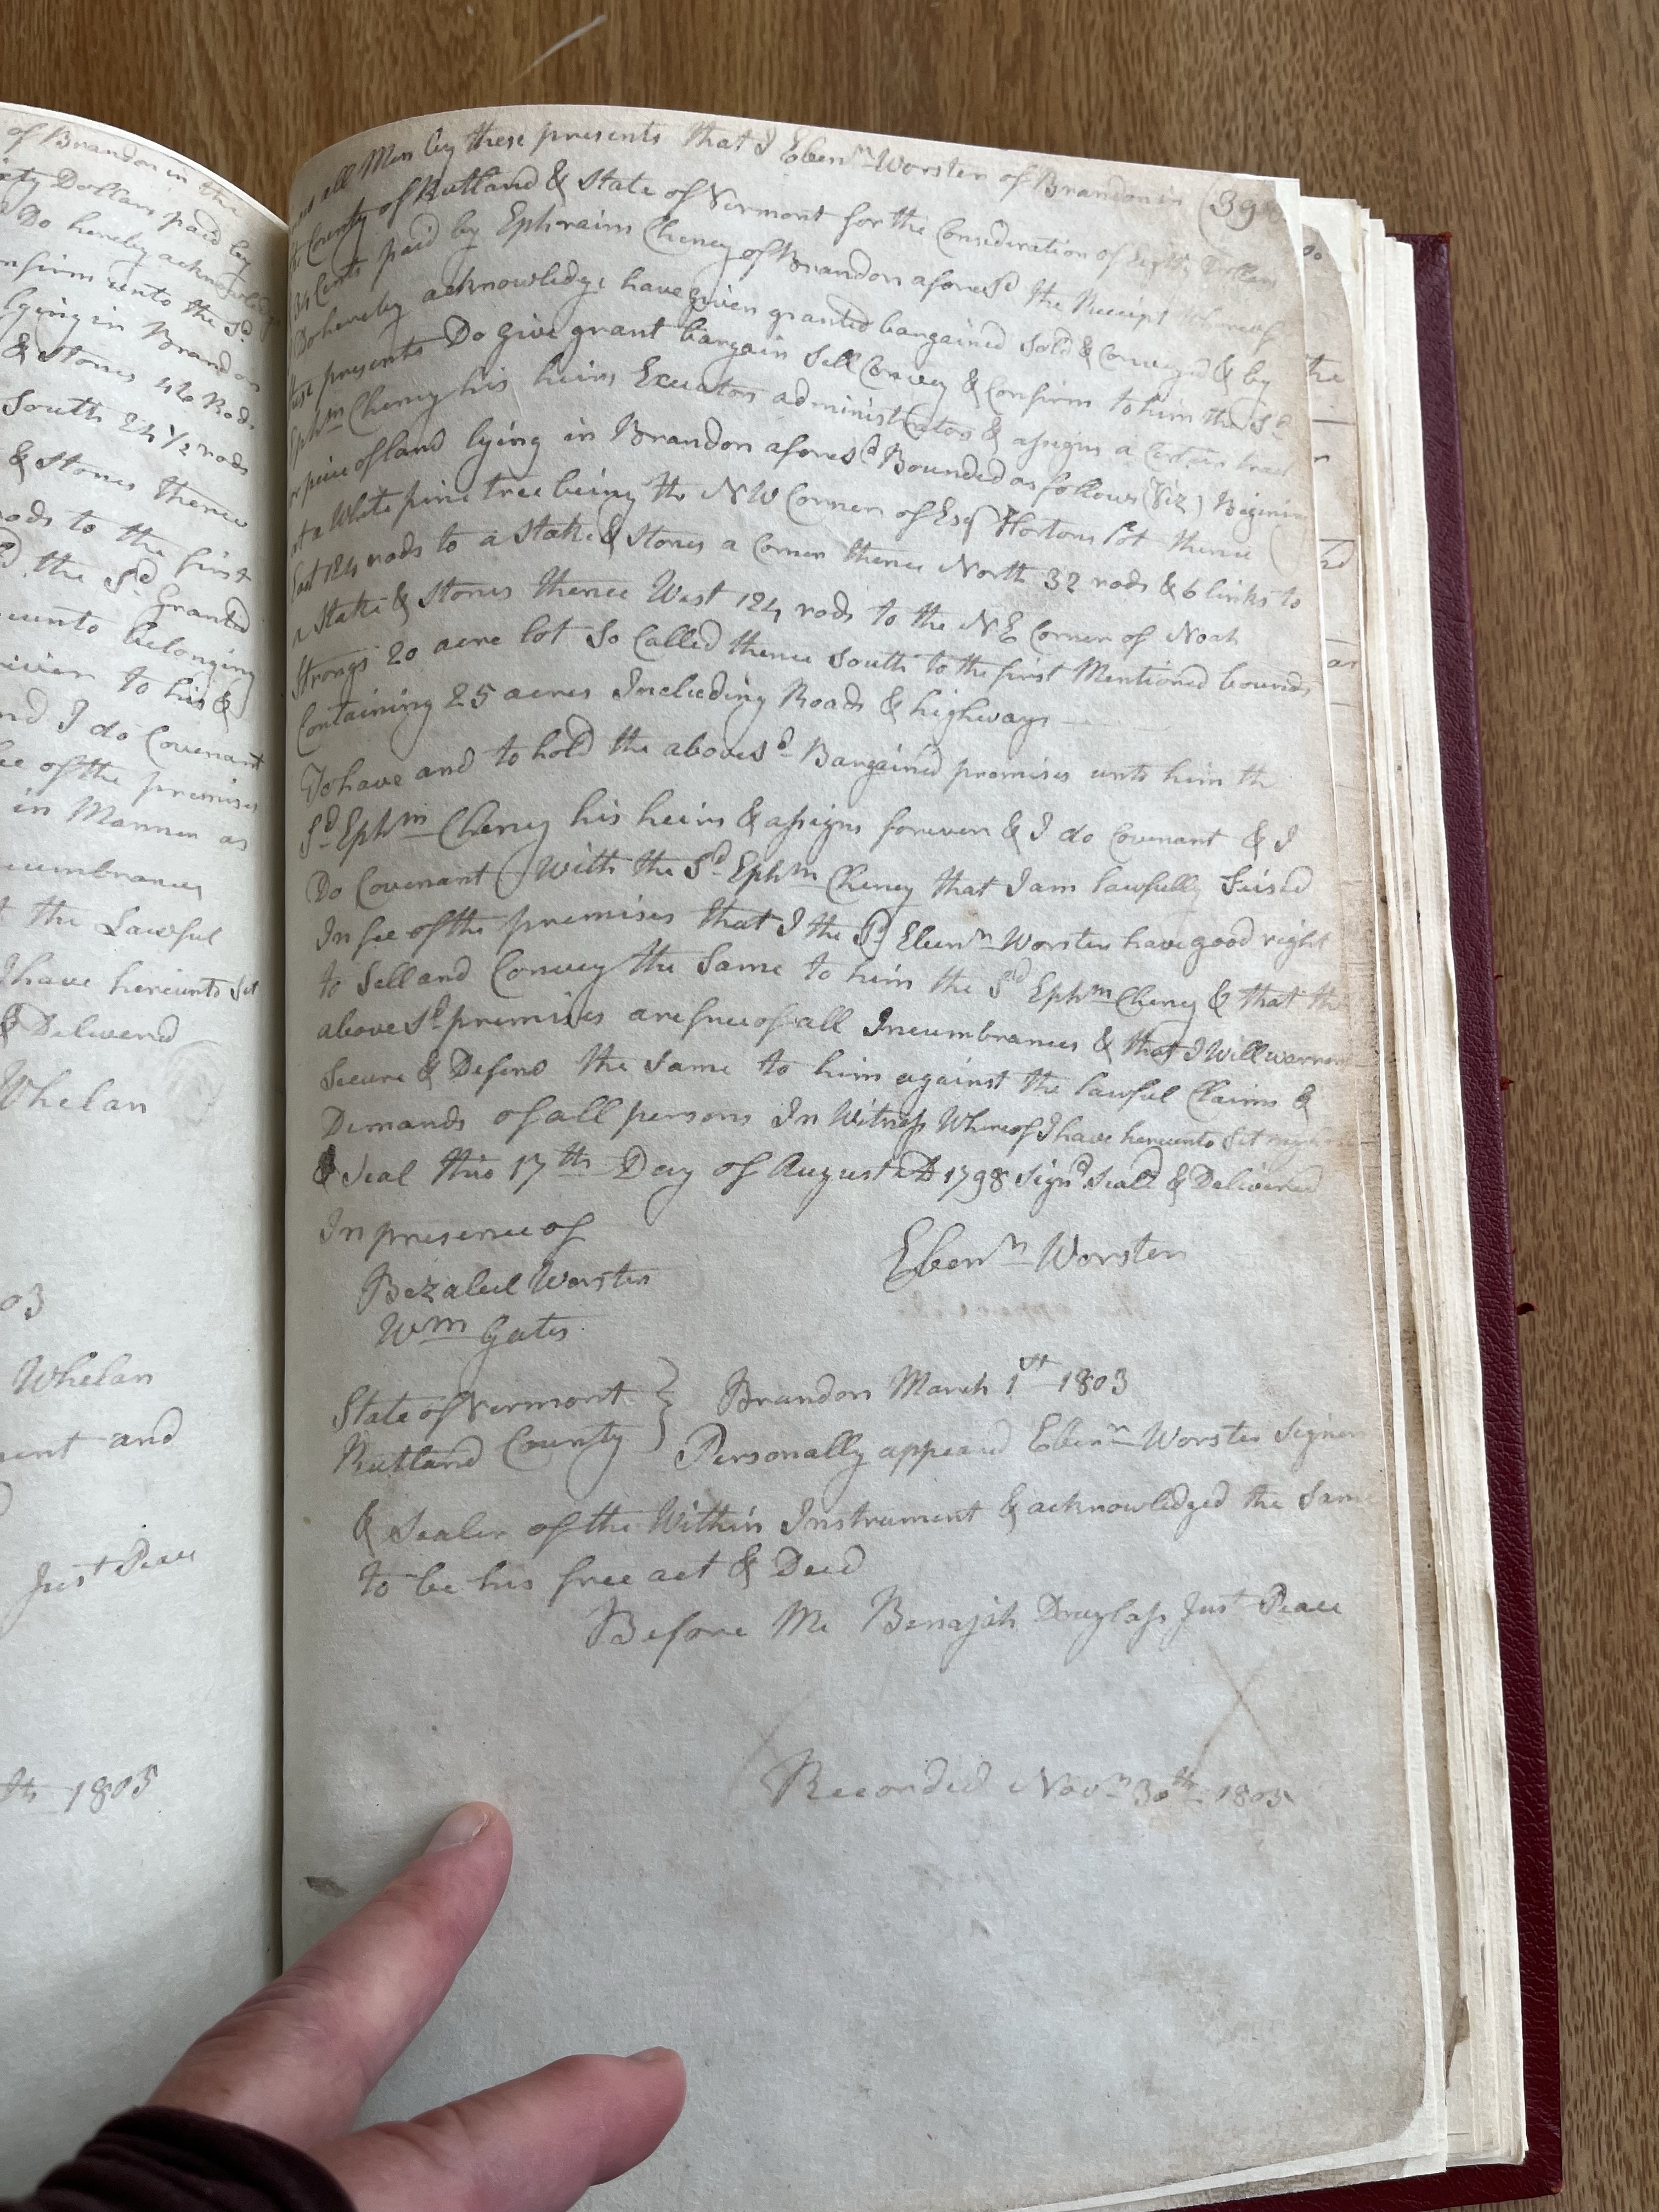 of Brandon in the
Dollars paid by
Do hereby acknowledge
unto the Sd
lying in Brandon
& Stones 46 Rods
South 24 1/2 rods
& Stones thence
rods to the first
the Sd Granted
unto belonging
to his &
and I do Covenant
of the premises
in Manner as
the Lawful
I have hereunto Set
& Delivered
Whelan
03
Whelan
and
Just Peace
1805
all Men by these presents that I Ebenr Worster of Brandon in (39
County of Rutland & State of Vermont for the Consideration of Eighty Dollars
34 Cents paid by Ephraim Cheney of Brandon aforesd the Receipt whereof
I Do hereby acknowledge have given granted bargained Sold & Conveyed & by
these presents Do give grant bargain Sell Convey & Confirm to him the Sd
Ephm Cheney his heirs Exeators administrators & assigns a Certain tract
or piece of land lying in Brandon aforesd Bounded as follows (Viz) Begining
at a White pine tree being the N W Corner of Esqr Hortons lot thence
East 124 rods to a Stake & Stones a Corner thence North 32 rods & 6 links to
a Stake & Stones thence West 124 rods to the N E Corner of Noah
Strongs 20 acre lot So Called thence South to the first Mentioned bounds
Containing 25 acres Including Roads & highways
To have and to hold the above sd Bargained premises unto him th
Sd Ephm Cheney his heirs & assigns forever & I do Covenant & I
Do Covenant With the Sd Ephm Cheney that I am lawfully Seised
In fee of the premises that I the Sd Ebenr Worster have good right
to Sell and Convey the Same to him the Sd Ephm Cheney & that the
above Sd premises are free of all Incumbrances & that I Will warrant
Secure & Defend the Same to him against the lawful Claims &
Demands of all persons In Witness Whereof I have hereunto Set my
& Seal this 17th Day of August AD 1798 Signd Seald & Delivered
In presence of
Ebenr Worster
Bezaleel Worster
Wm Gates
State of Vermont } Brandon March 1st 1803
Rutland County } Personally appeard Ebenr Worster Signer
& Sealer of the Within Instrument & acknowledged the Same
to be his free act & Deed
Before Me Benajah Douglass Just Peace
Recorded Novr 30th 1805